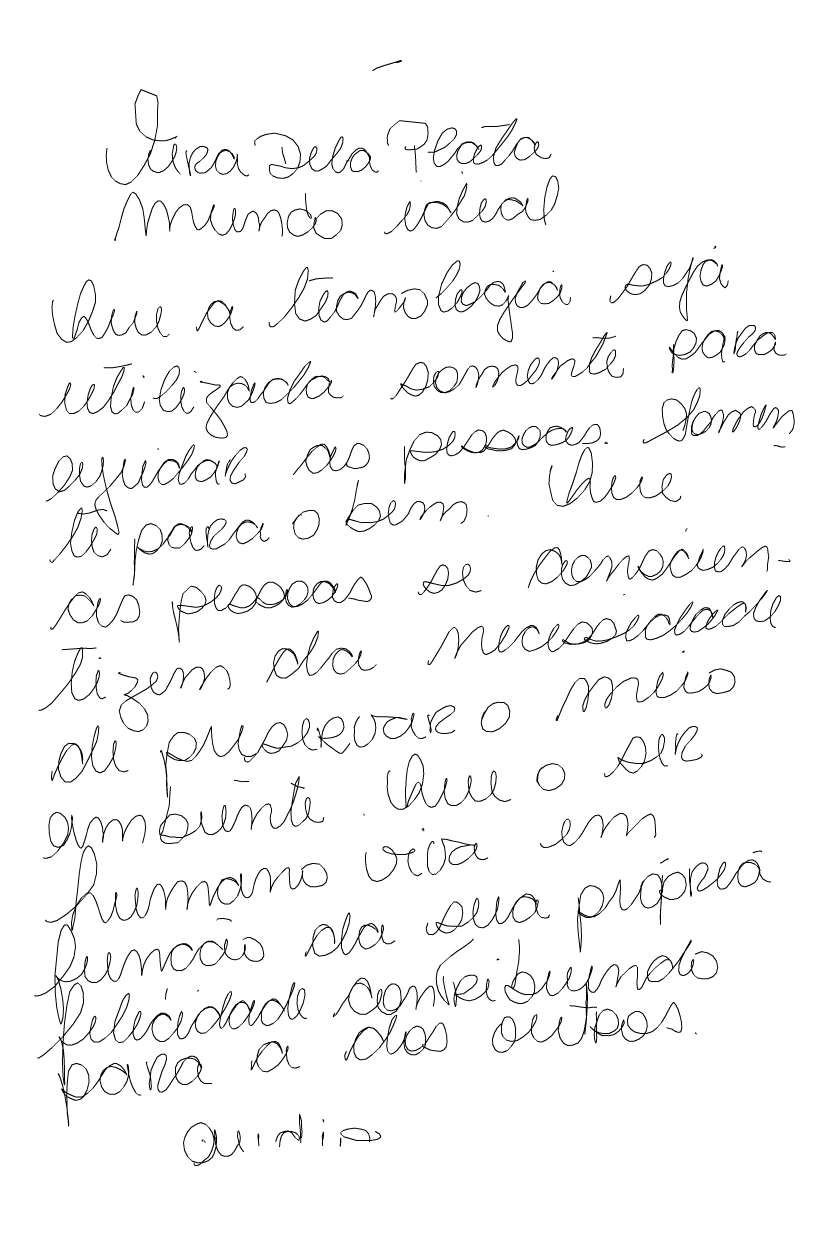 Dela Plata
Mundo ideal
Que a tecnologia seja
utilizada somente para
ayudar as pessoas. Somen
te para o bem. Que
as pessoas se conscien-
tizem da necessidade
de preservar o meio
ambiente. Que o ser
humano viva em
funcão da sua própria
felicidade contribuindo
para a dos outros.